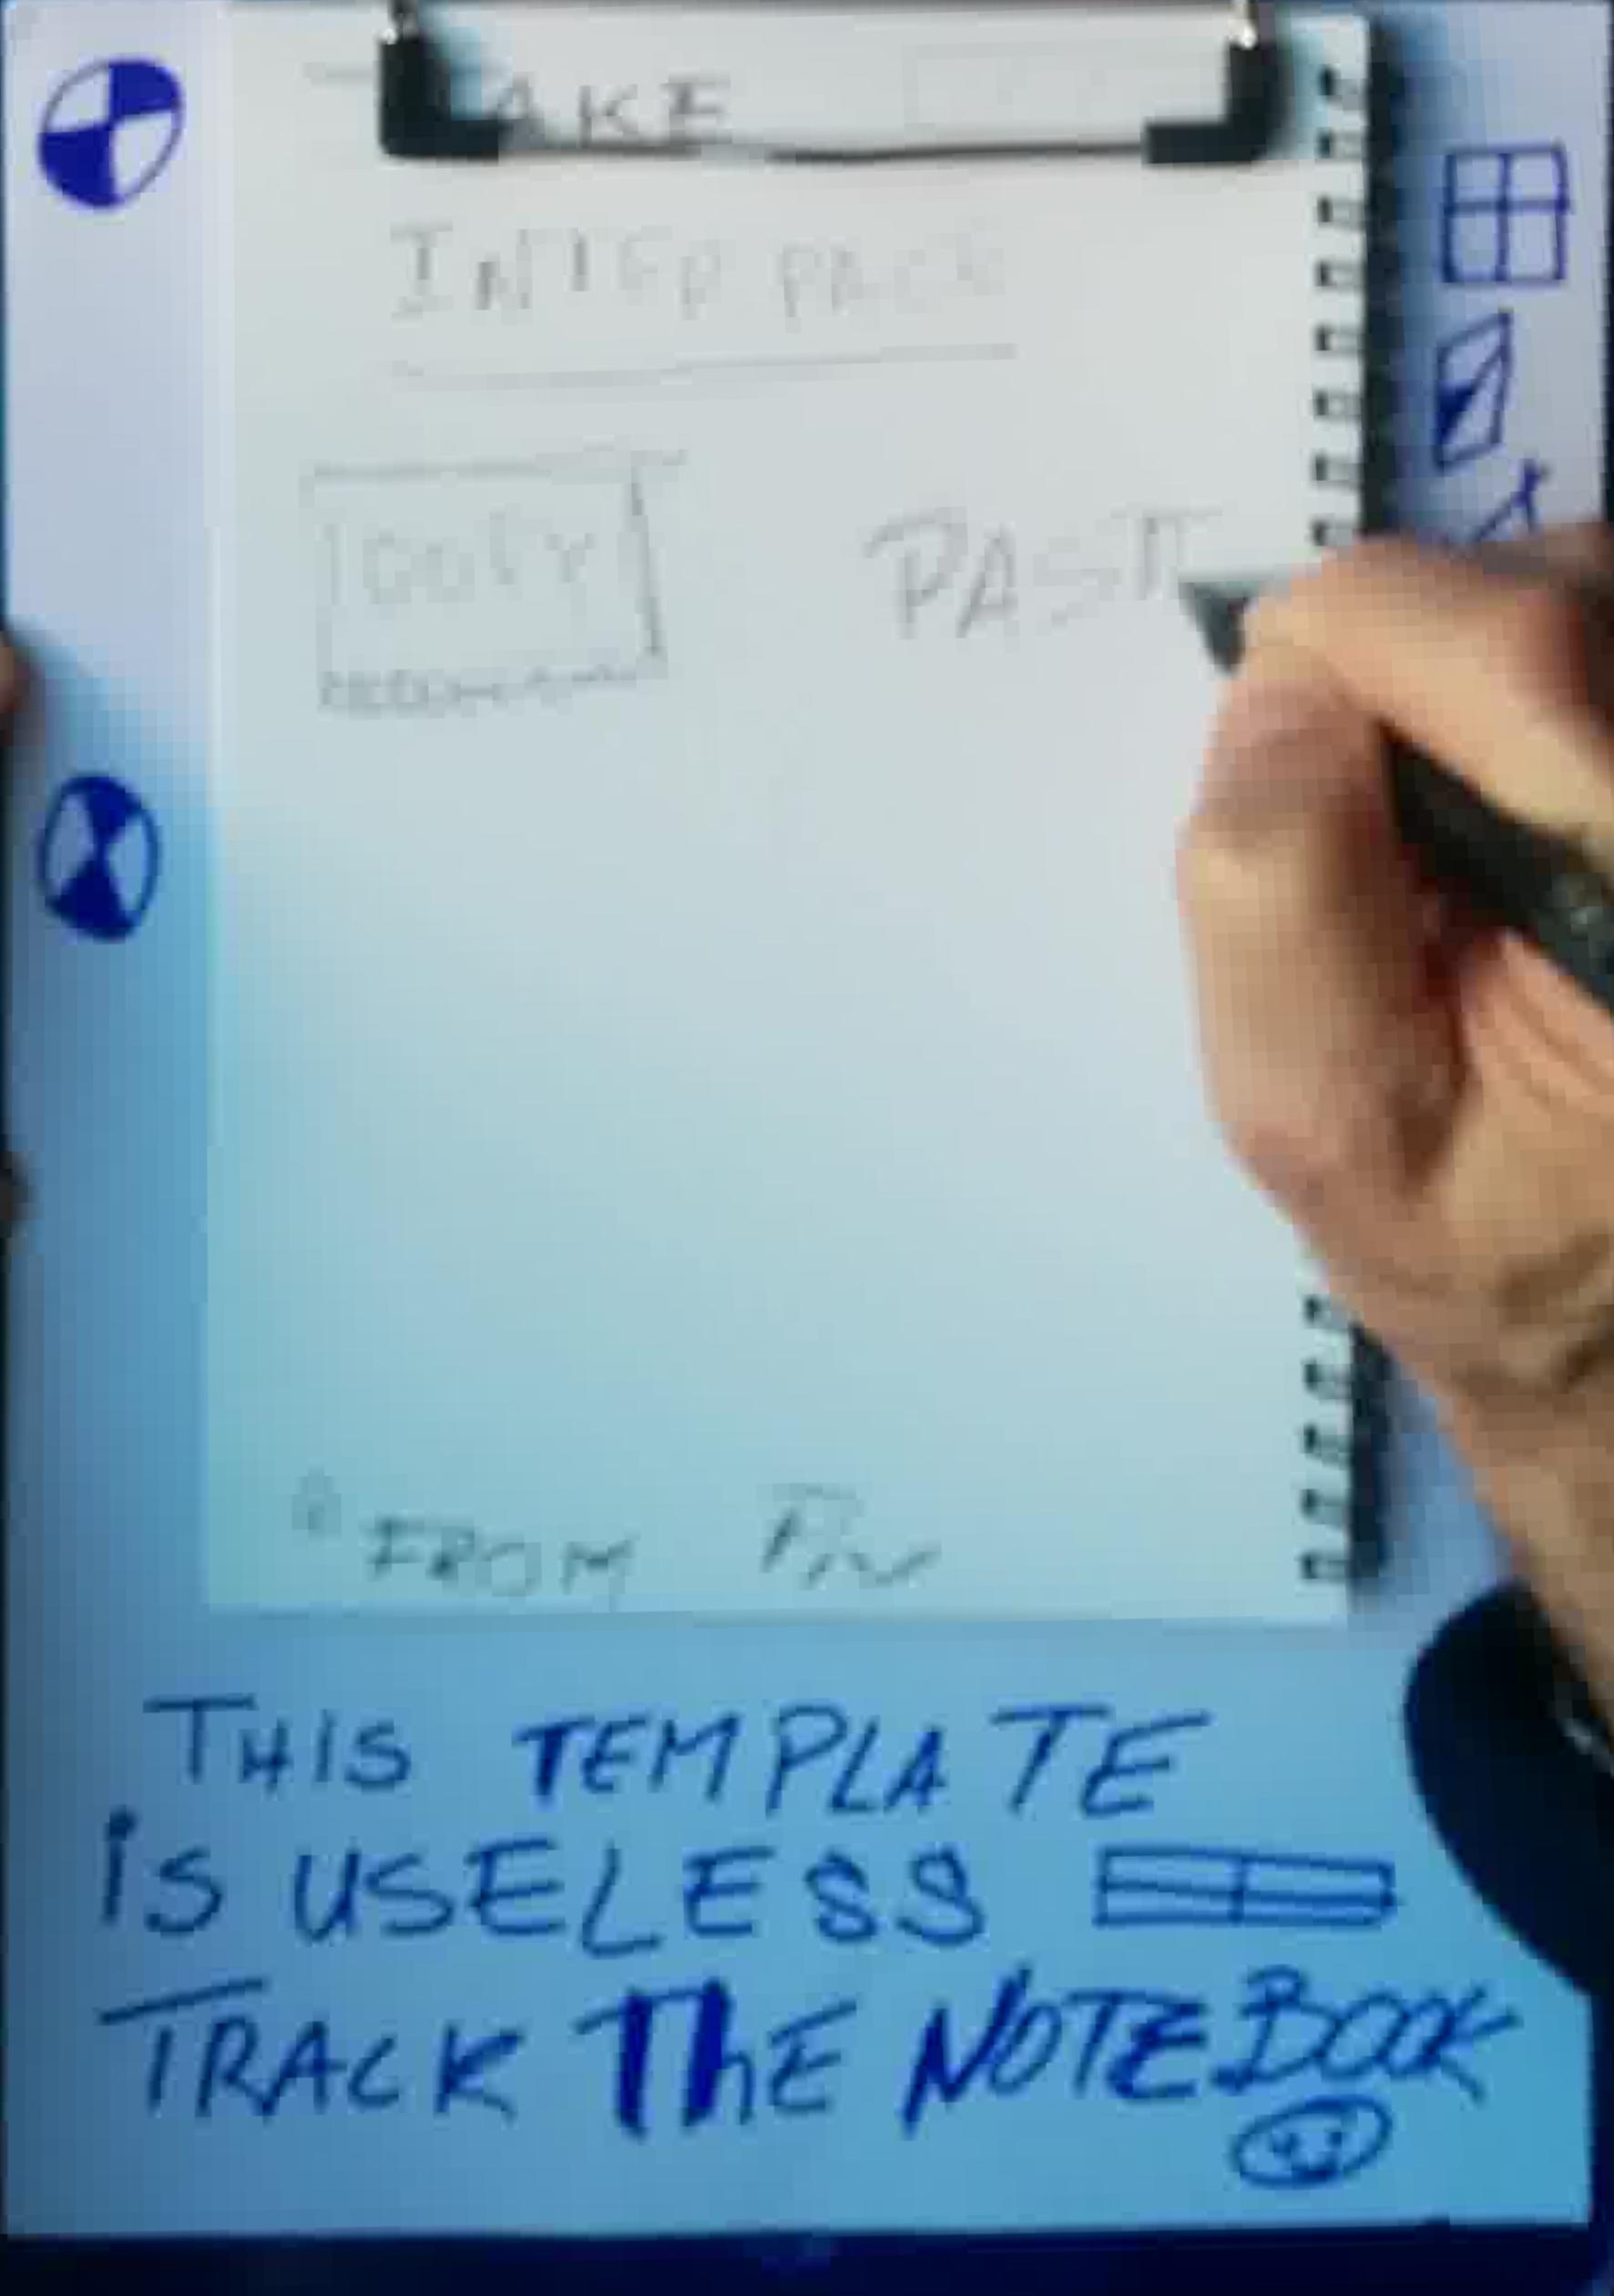 AKE
COPY PAST
FROM
THIS TEMPLATE
iS USELESS
TRACK ThE NOTEBOOK